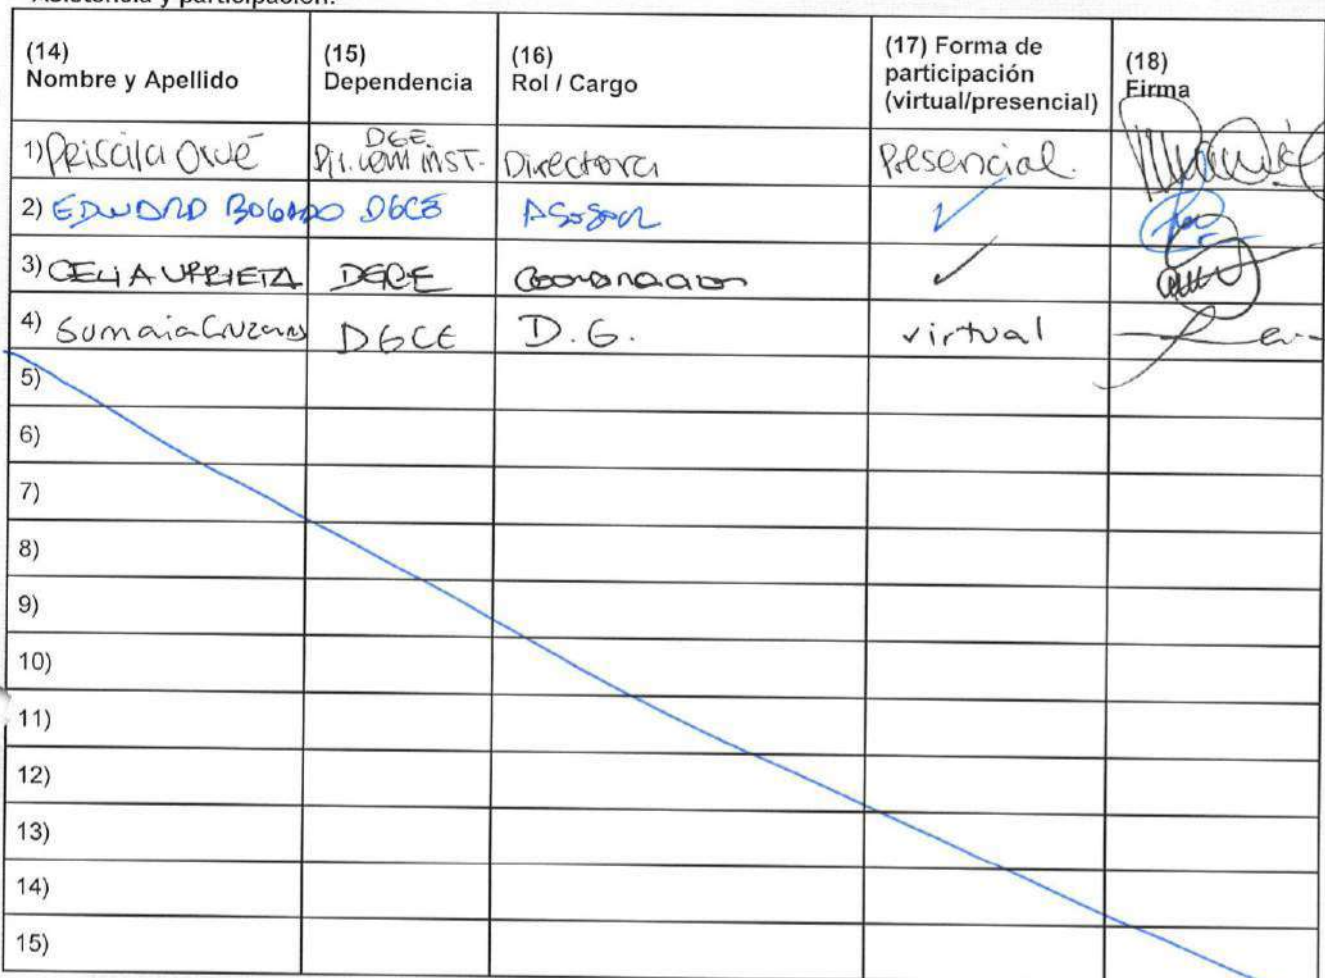 Asistencia y participación:
(14)
Nombre y Apellido
(15)
Dependencia
(16)
Rol / Cargo
(17) Forma de
participación
(virtual/presencial)
(18)
Firma
1) Priscila Orué
DGE.
Directora
Presencial.
2) EDUARDO BOGADO DGCE
Asesor
3) CELIA URBIETA
4) Sumaia
DGCE
D.G.
virtual
5)
6)
7)
8)
9)
10)
11)
12)
13)
14)
15)